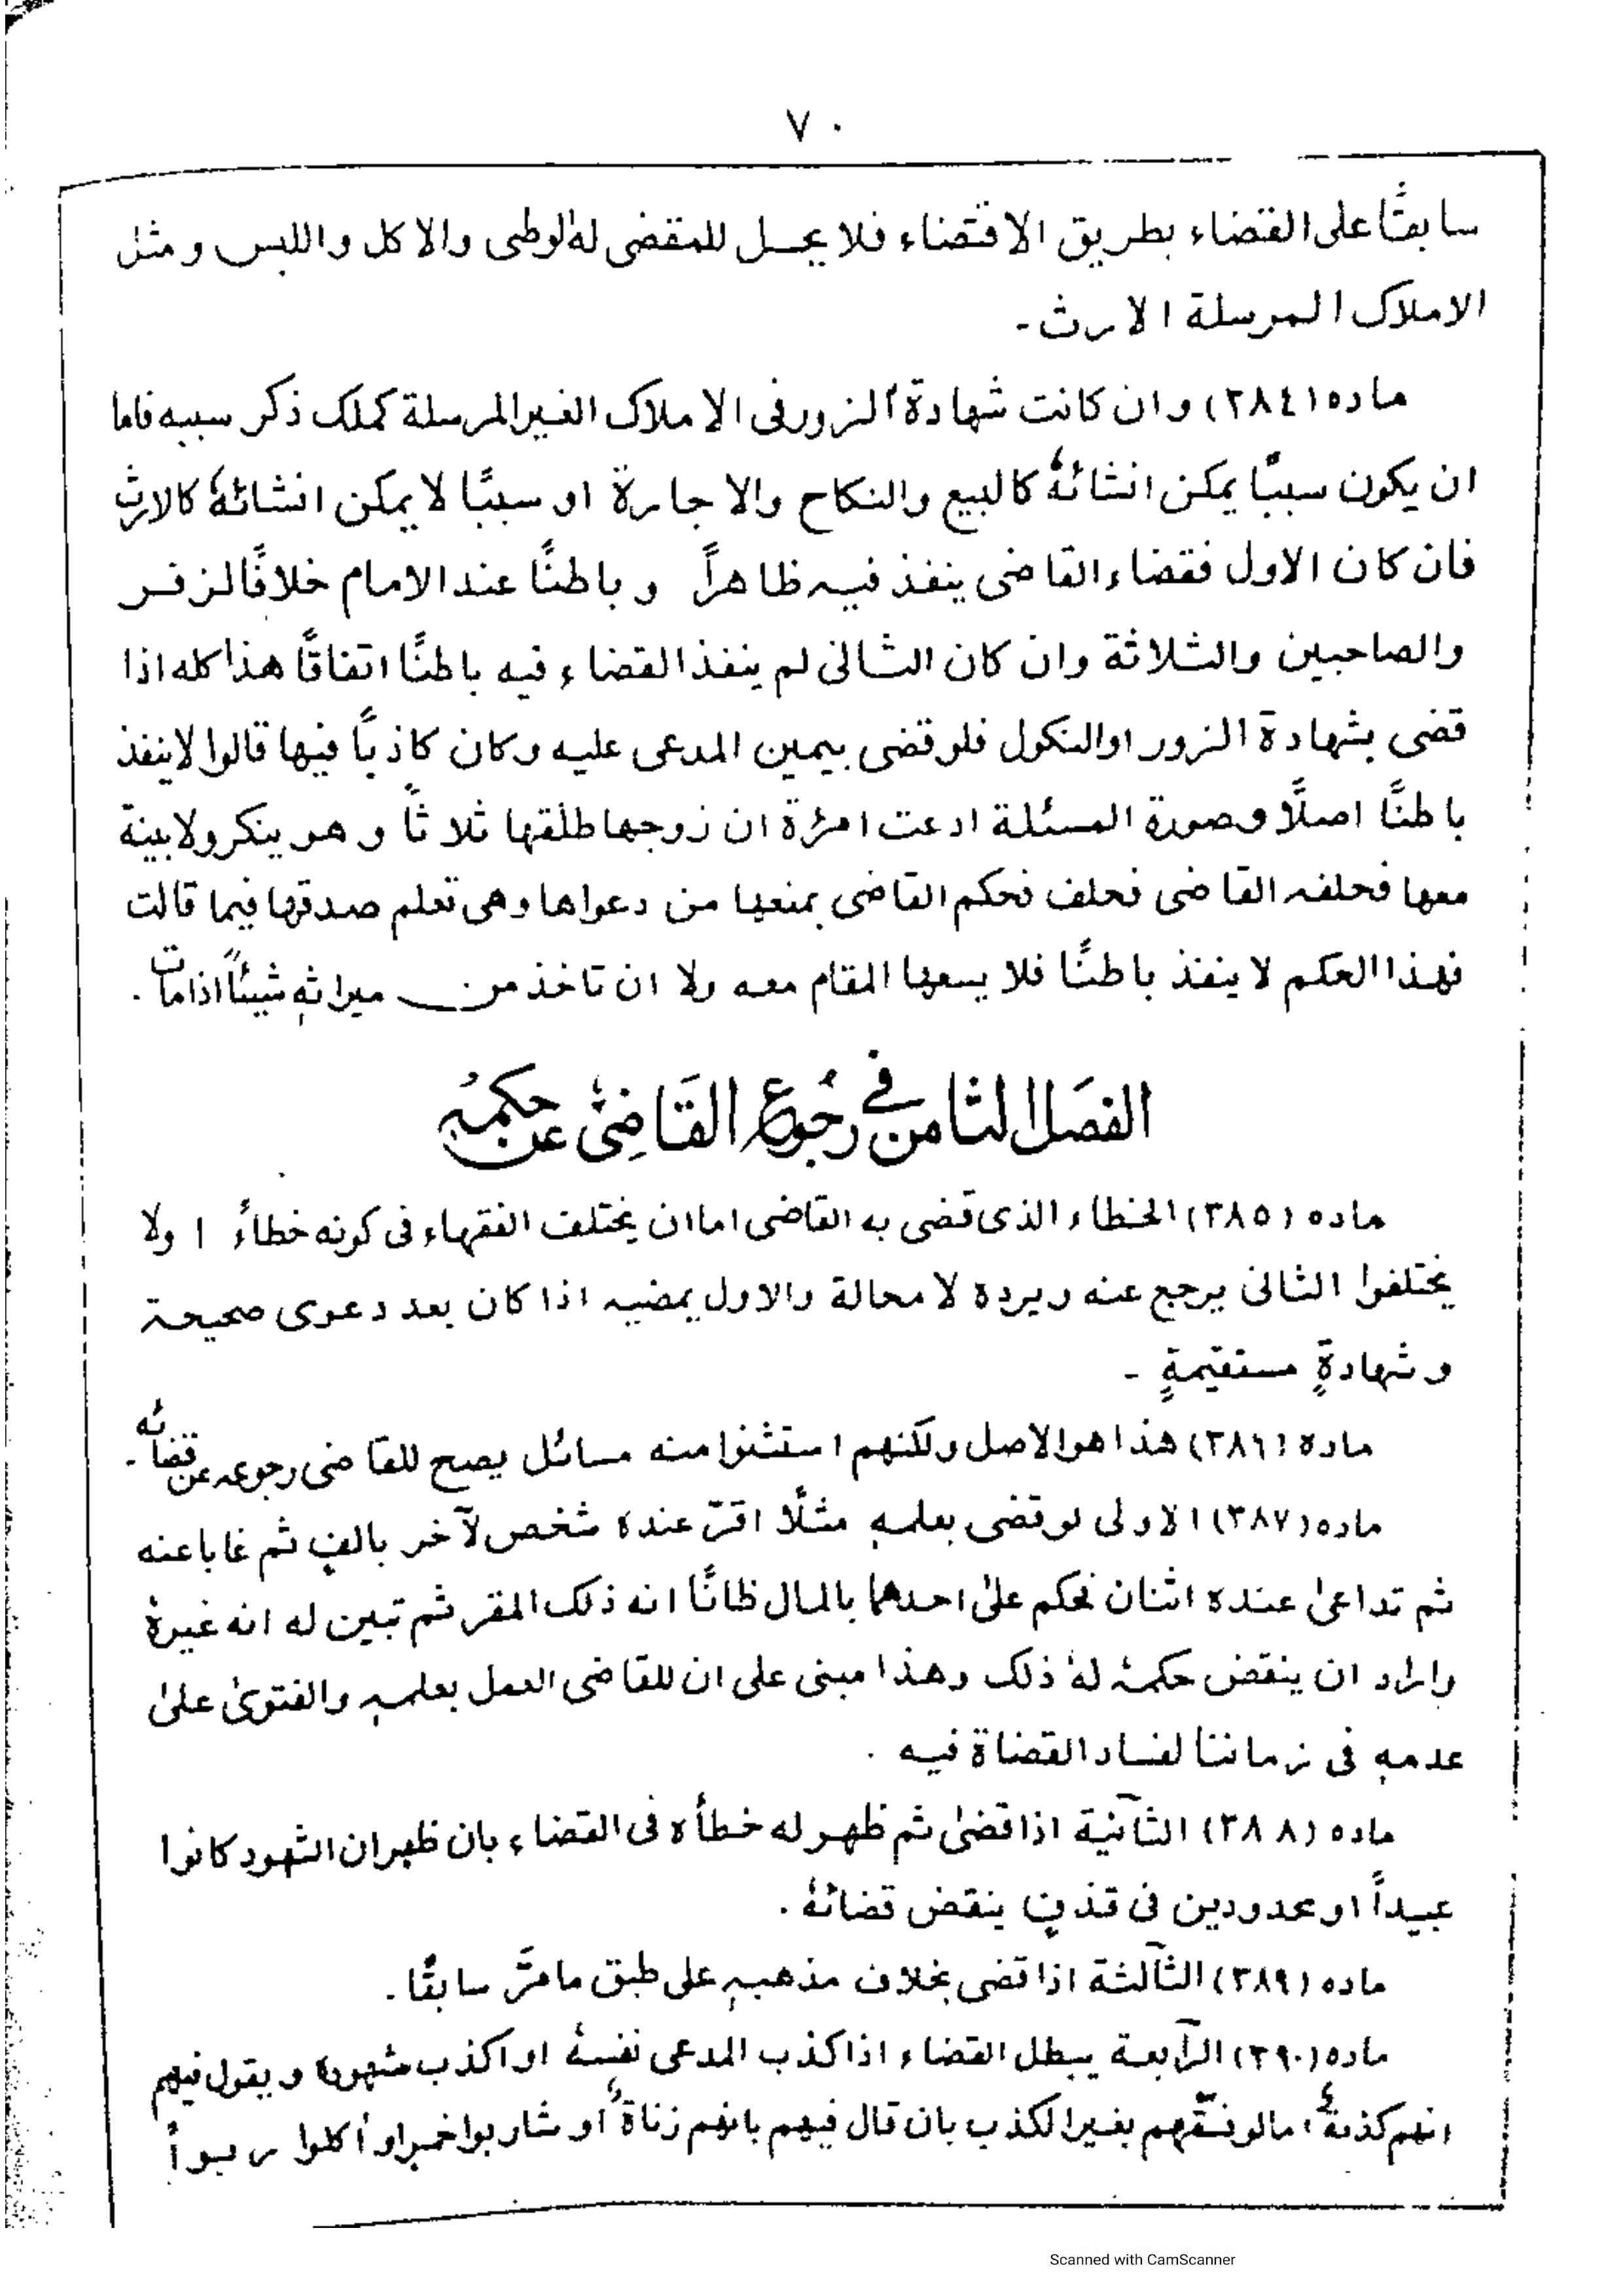 ٧٠
سابقًا على القضاء بطريق الاقتضاء فلا يحل للمقضى له الوطى والاكل واللبس ومثل
الاملاك المرسلة الارث -
ماده (٣٨٤) وان كانت شهادة الزور فى الاملاك الغير المرسلة كملك ذكر سببه فاما
ان يكون سببًا يمكن انشائهٗ كالبيع والنكاح والاجارة او سببًا لا يمكن انشائهٗ كالارث
فان كان الاول فقضاء القاضى ينفذ فيه ظاهراً وباطنًا عند الامام خلافًا لزفر
والصاحبين والثلاثة وان كان الثانى لم ينفذ القضاء فيه باطنًا اتفاقًا هذا كله اذا
قضى بشهادة الزور او النكول فلو قضى بيمين المدعى عليه وكان كاذبًا فيها قالوا لا ينفذ
باطنًا اصلًا وصورة المسئلة ادعت امرٔة ان زوجها طلقها ثلاثاً وهو ينكر ولا بينة
معها فحلفه القاضى فحلف فحكم القاضى بمنعها من دعواها وهى تعلم صدقها فيما قالت
فهذا الحكم لا ينفذ باطنًا فلا يسعها المقام معه ولا ان تاخذ من ميراثهٖ شيئاً اذا مات .
الفصل الثامن في رجوع القاضى عن حكمهٖ
ماده (٣٨٥) الخطاء الذى قضى به القاضى اما ان يختلف الفقهاء فى كونه خطاءً اولا
يختلفوا الثانى يرجع عنه ويرده لا محالة والاول يمضيه اذا كان بعد دعوى صحيحة
وشهادةٍ مستقيمةٍ -
ماده (٣٨٦) هذا هو الاصل ولكنهم استثنوا منه مسائل يصح للقاضى رجوعه عن قضائه .
ماده (٣٨٧) الاولى لو قضى بعلمهٖ مثلًا اقرّ عنده شخص لآخر بالفٍ ثم غابا عنه
ثم تداعىٰ عنده اثنان فحكم علىٰ احدهما بالمال ظانًا انه ذلك المقر ثم تبين له انه غيرهٗ
واراد ان ينقض حكمهٗ لهٗ ذلك وهذا مبنى على ان للقاضى العمل بعلمهٖ والفتوىٰ علىٰ
عدمهٖ فى زماننا لفساد القضاة فيه .
ماده (٣٨٨) الثانية اذا قضىٰ ثم ظهر له خطأه فى القضاء بان ظهر ان الشهود كانوا
عبيداً او محدودين فى قذفٍ ينقض قضائهٗ .
ماده (٣٨٩) الثالثة اذا قضى بخلاف مذهبهٖ على طبق ما مرَّ سابقًا .
ماده (٣٩٠) الرابعة يبطل القضاء اذا كذب المدعى نفسهٗ او اكذب شهودهٗ ويقول فيهم
انهم كذبةٌ امالو فسّقهم بغير الكذب بان قال فيهم بانهم زناةٌ او شاربوا خمرٍ او أكلوا ربواً
Scanned with CamScanner